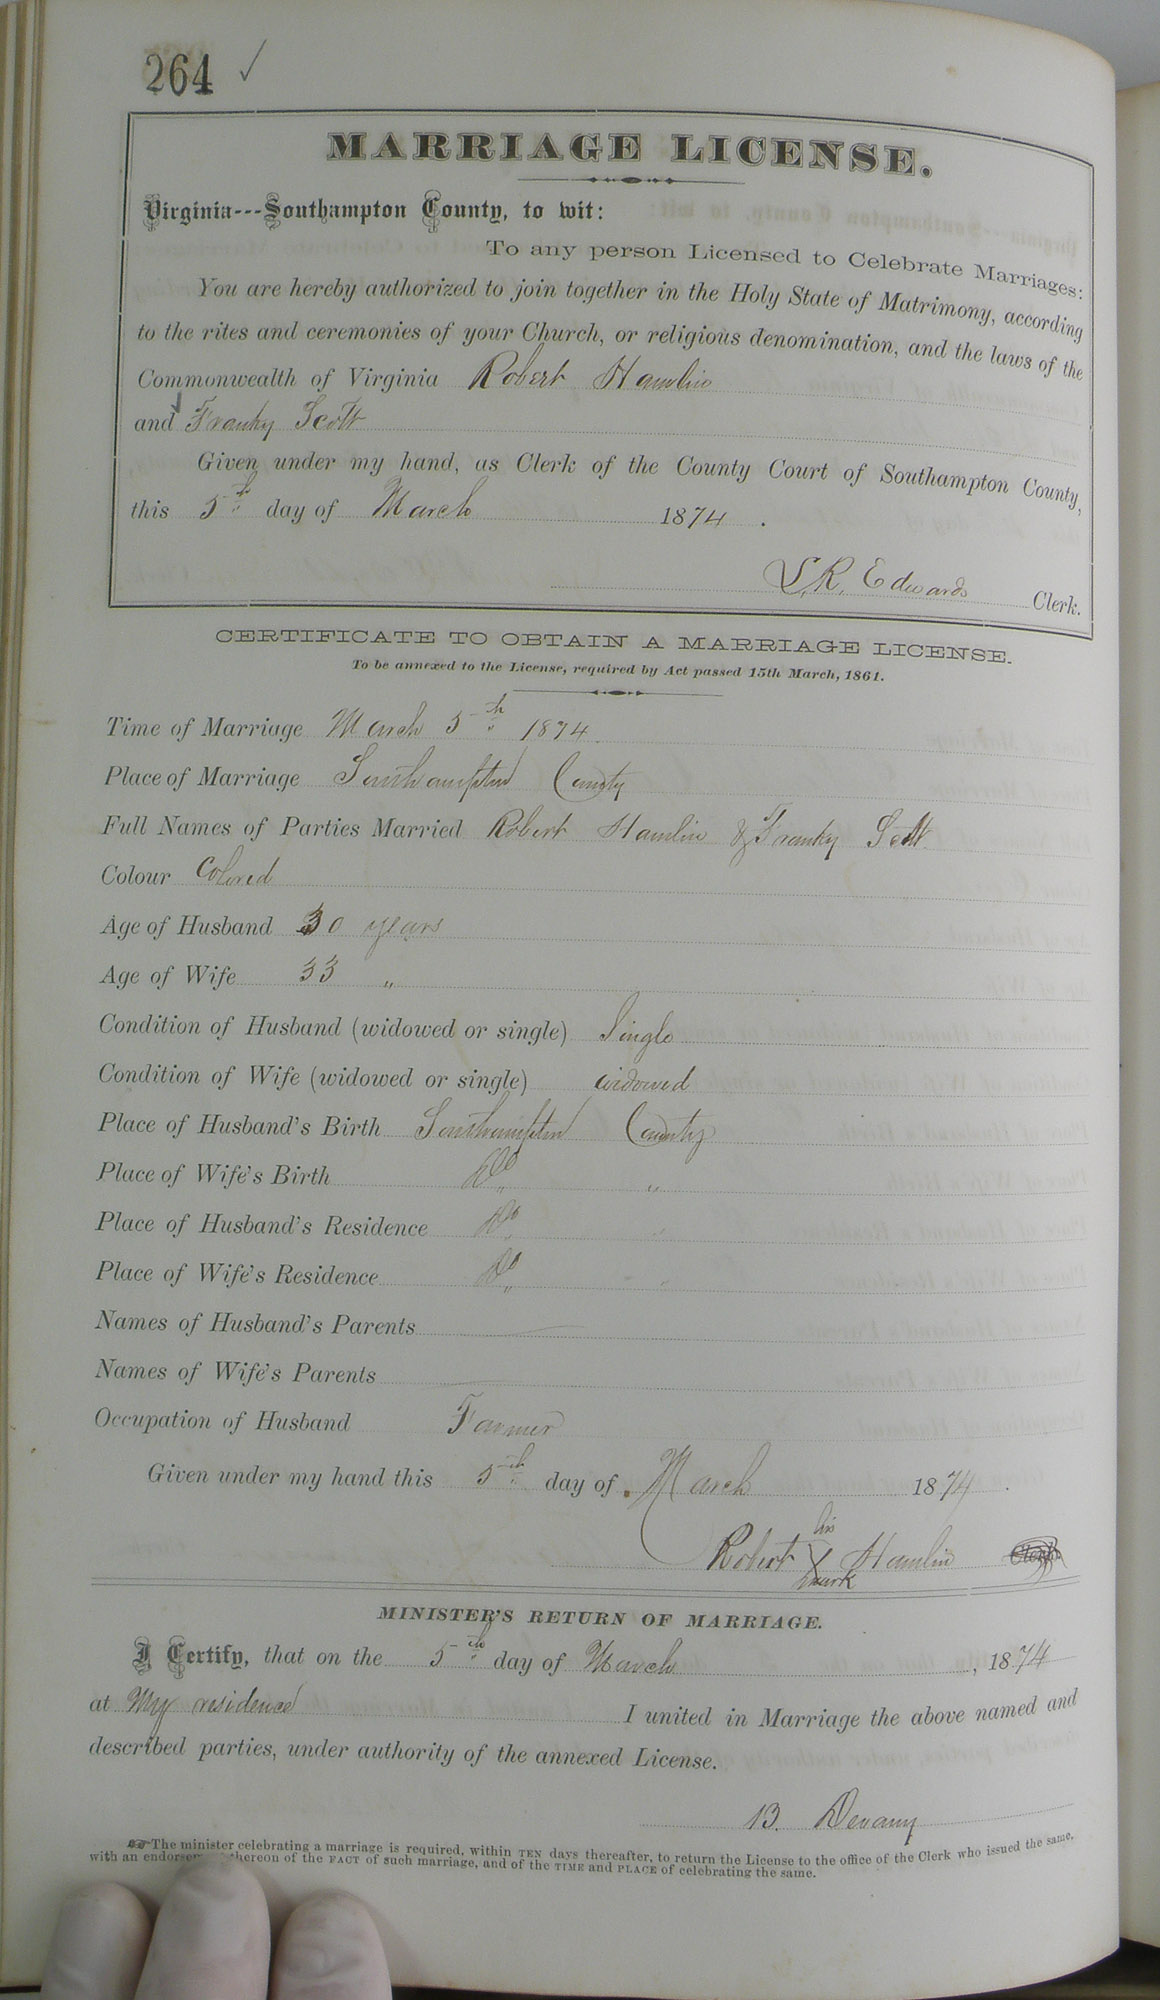 264 ✓
MARRIAGE LICENSE.
Virginia---Southampton County, to wit:
To any person Licensed to Celebrate Marriages:
You are hereby authorized to join together in the Holy State of Matrimony, according
to the rites and ceremonies of your Church, or religious denomination, and the laws of the
Commonwealth of Virginia Robert Hamlin
and Franky Scott
Given under my hand, as Clerk of the County Court of Southampton County,
this 5th day of March 1874.
L. R. Edwards Clerk.
CERTIFICATE TO OBTAIN A MARRIAGE LICENSE.
To be annexed to the License, required by Act passed 15th March, 1861.
Time of Marriage March 5th 1874
Place of Marriage Southampton County
Full Names of Parties Married Robert Hamlin & Franky Scott
Colour Colored
Age of Husband 30 years
Age of Wife 33 "
Condition of Husband (widowed or single) Single
Condition of Wife (widowed or single) widowed
Place of Husband's Birth Southampton County
Place of Wife's Birth Do "
Place of Husband's Residence Do "
Place of Wife's Residence Do "
Names of Husband's Parents
Names of Wife's Parents
Occupation of Husband Farmer
Given under my hand this 5th day of March 1874.
his
Robert X Hamlin Clerk.
mark
MINISTER'S RETURN OF MARRIAGE.
I Certify, that on the 5th day of March, 1874
at My residence I united in Marriage the above named and
described parties, under authority of the annexed License.
B. Devany
☞ The minister celebrating a marriage is required, within TEN days thereafter, to return the License to the office of the Clerk who issued the same,
with an thereon of the FACT of such marriage, and of the TIME and PLACE of celebrating the same.